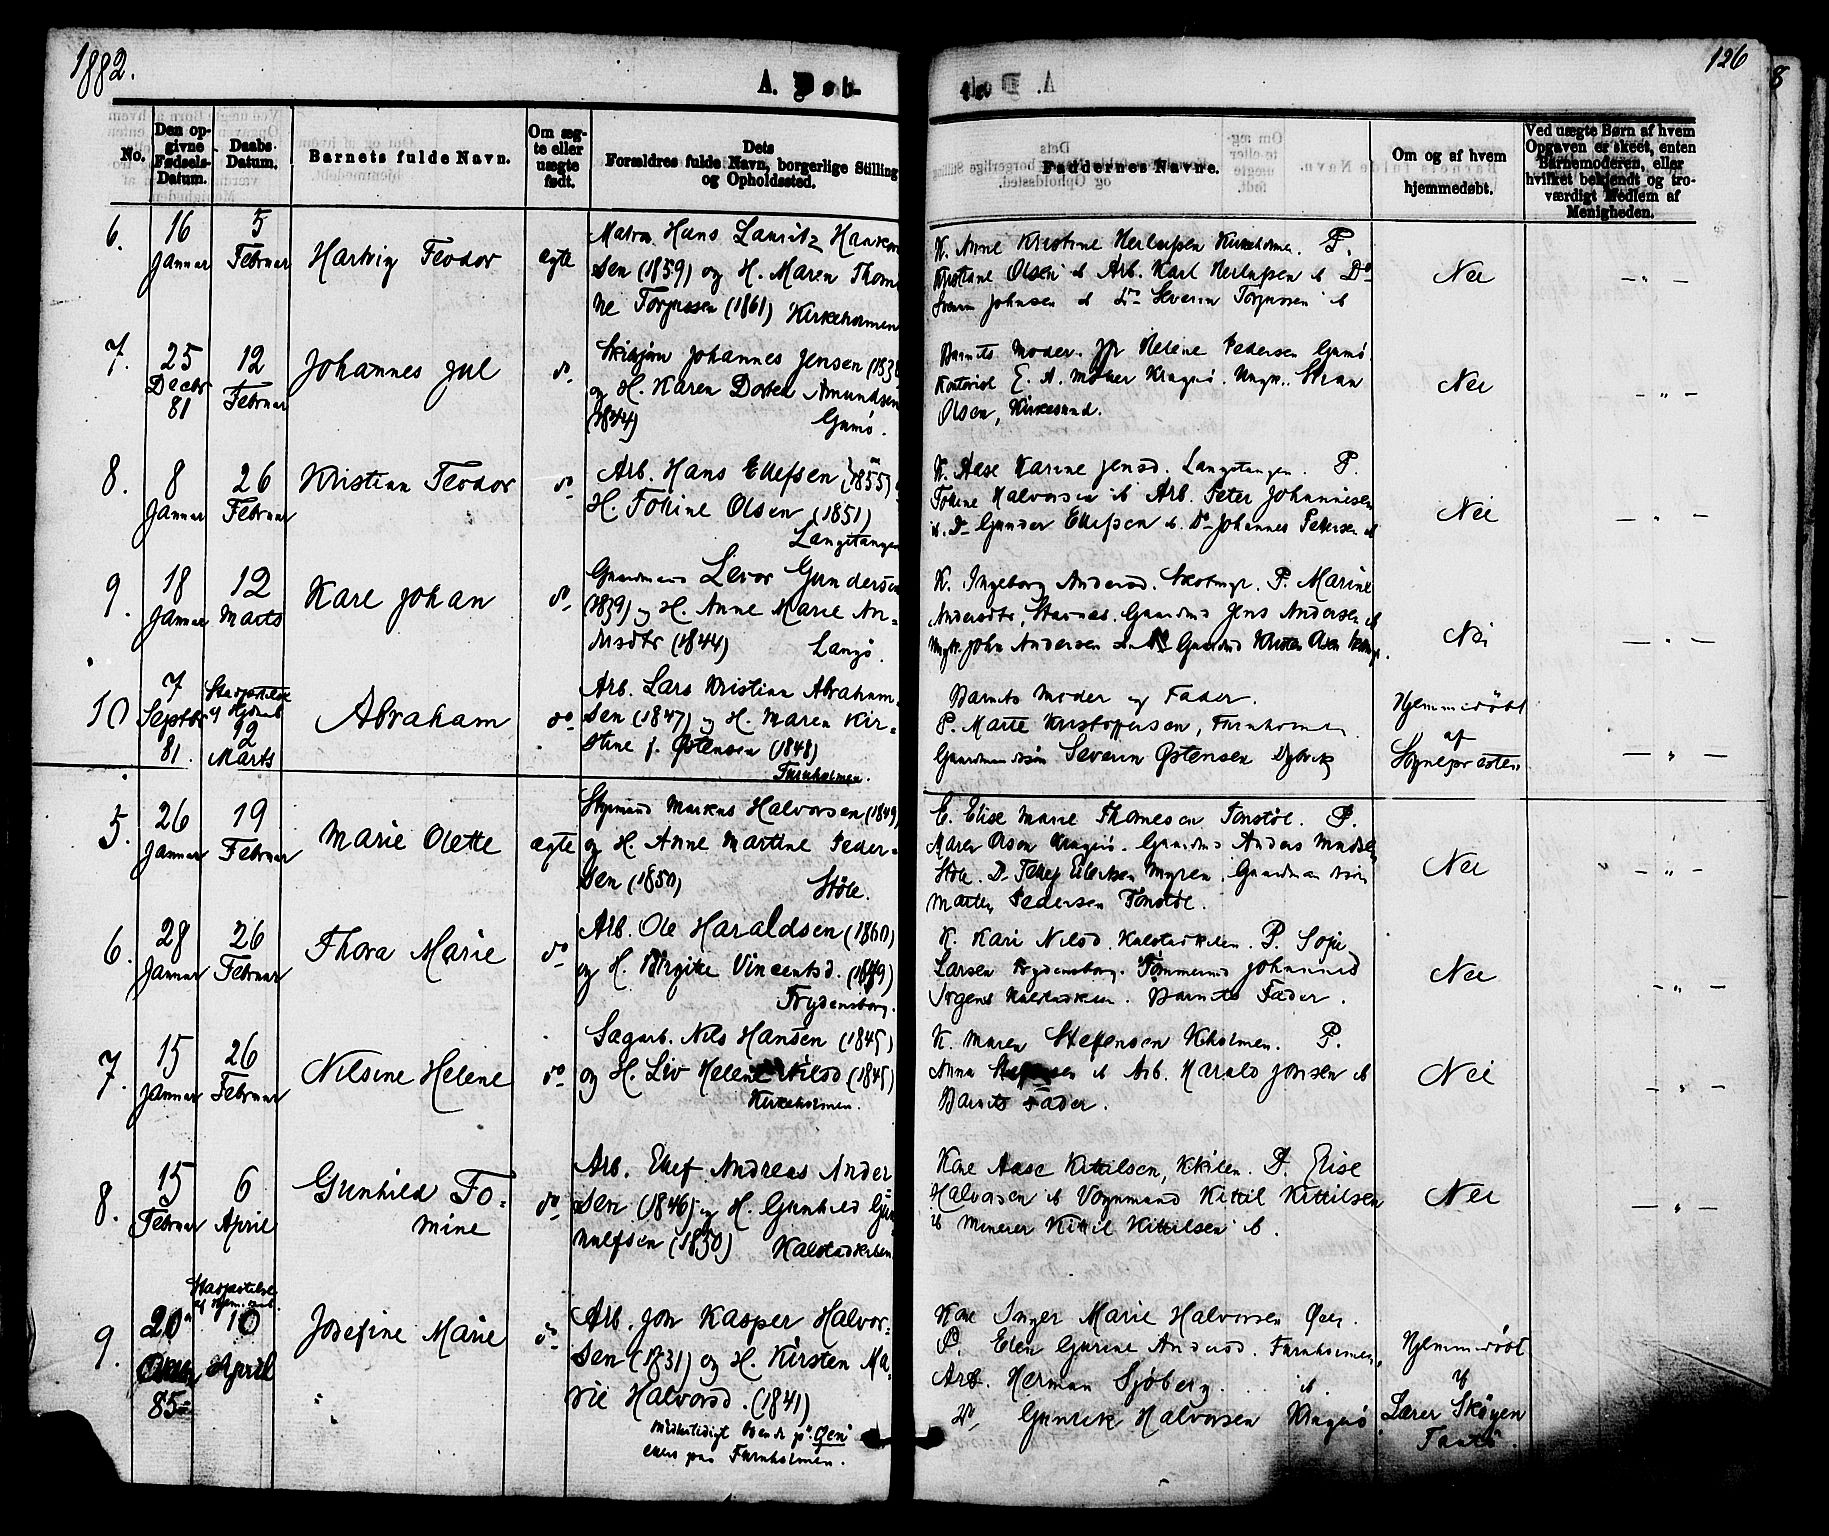 1882.
126
A. Døb.
No.
Den opgivne Fødsels-Datum.
Daabs-Datum.
Barnets fulde Navn.
Om ægte eller uægte født.
Dets Forældres fulde Navn, borgerlige Stilling og Opholdssted.
Faddernes Navne.
Om og af hvem hjemmedøbt.
Ved uægte Børn af hvem Opgaven er skeet, enten Barnemoderen, eller hvilket bekjendt og troværdigt Medlem af Menigheden.
6.
16
Januar
5
Februar
Hartvig Teodor
ægte
Matro. Hans Lauritz
sen (1859) og H. Maren Thom
ne Torjussen (1861) Kirkeholmen
K. Anne Kristine Herlufsen Kirkeholmen. P.
Kristiane Olsen ib Arb. Karl Herlufsen ib Do
Johnsen ib Do Severin Torjussen ib
Nei
— " —
7.
25
Decbr
81
12
Februar
Johannes Jul
do
Johannes Jensen
og H. Karen Dortea Amundsen
(1844) Gumø.
Barnets Moder. Jfr Helene Pedersen Gumø.
E. A. Møller Kragerø. Ungk.
Olsen, Kirkesund.
Nei
— " —
8.
8
Januar
26
Februar
Kristian Teodor
do
Arb. Hans Ellefsen (1855)
H. Tomine Olsen (1851)
Langetangen
K. Aase Karine Jensd. Langetangen. P.
Halvorsen ib Arb. Peter Johannesen
ib. Do Gunder Ellefsen ib. Do Johannes Pettersen ib
Nei
— " —
9.
18
Januar
12
Marts
Karl Johan
do
Gaardmand Levor Gundersen
(1839) og H. Anne Marie An-
dersdtr (1844) Langø.
K. Ingeborg Andersd. P. Marine
Andersdtr, Gaardmd Jens Andersen ib
Ungk. John Andersen Gaardmd Kristen Olsen
Nei
— " —
10
7
Septbr
81.
Stadfæstelse
af Hjdaab
12
Marts
Abraham
do
Arb. Lars Kristian Abraham-
sen (1847) og H. Maren Kir-
stine f. Østensen (1848)
Furuholmen.
Barnets Moder og Fader.
P. Marte Kristoffersen, Furuholmen
Gaardmandssøn Severin Østensen Dybvik
Hjemmedøbt
af
Sognepræsten
— " —
5.
26
Januar
19
Februar
Marie Olette
ægte
Styrmand Markus Halvorsen (1849)
og H. Anne Martine Peder-
sen (1850) Støle.
E. Elise Marie Thomesen Tonstøl. P.
Maren Olsen Kragerø. Gaardmd Anders Madsen
Støle. Do Tellef Eilertsen Myren. Gaardmandssøn
Martin Pedersen Tonstøl.
Nei
— " —
6.
28
Januar
26
Februar
Thora Marie
do
Arb. Ole Haraldsen (1860)
og H. Birgitte Vincentsd. (1849)
Frydensborg.
K. Kari Nilsd. Kalstadkilen. P. Sofie
Larsen Frydensborg. Tømmermd Johannes
Kalstadkilen. Barnets Fader.
Nei
— " —
7.
15
Januar
26
Februar
Nilsine Helene
do
Sagarb. Nils Hansen (1845)
og H. Liv Helene Nilsd (1845)
Kirkeholmen.
K. Maren Steffensen Kholmen. P.
Anna ib Arb. Harald Jonsen ib
Barnets Fader.
Nei
— " —
8.
15
Februar
6
April
Gunhild To-
mine
do
Arb. Ellef Andreas Ander
sen (1846) og H. Gunhild Gun
nulfsen (1850) Kalstadkilen
Kone Aase Kittilsen, Kkilen. P. Elise
Halvorsen ib Vognmand Kittil Kittilsen
ib Minerer Kittil Kittilsen ib.
Nei
— " —
9.
20
85
Stadfæstelse
af Hjem.daab.
10
April
Josefine Marie
do
Arb. Jon Kasper Halvor-
sen (1831) og H. Kirsten Ma-
rie Halvorsd. (1841)
midlertidigt boende på Øen
ellers paa Furuholmen.
Kone Inger Marie Halvorsen Øen.
P. Elen Gurine Andersd. Furuholmen.
Arb. Herman Sjøberg. ib.
Do Gunerik Halvorsen Kragerø
Hjemmedøbt
af
Lærer Skøyen